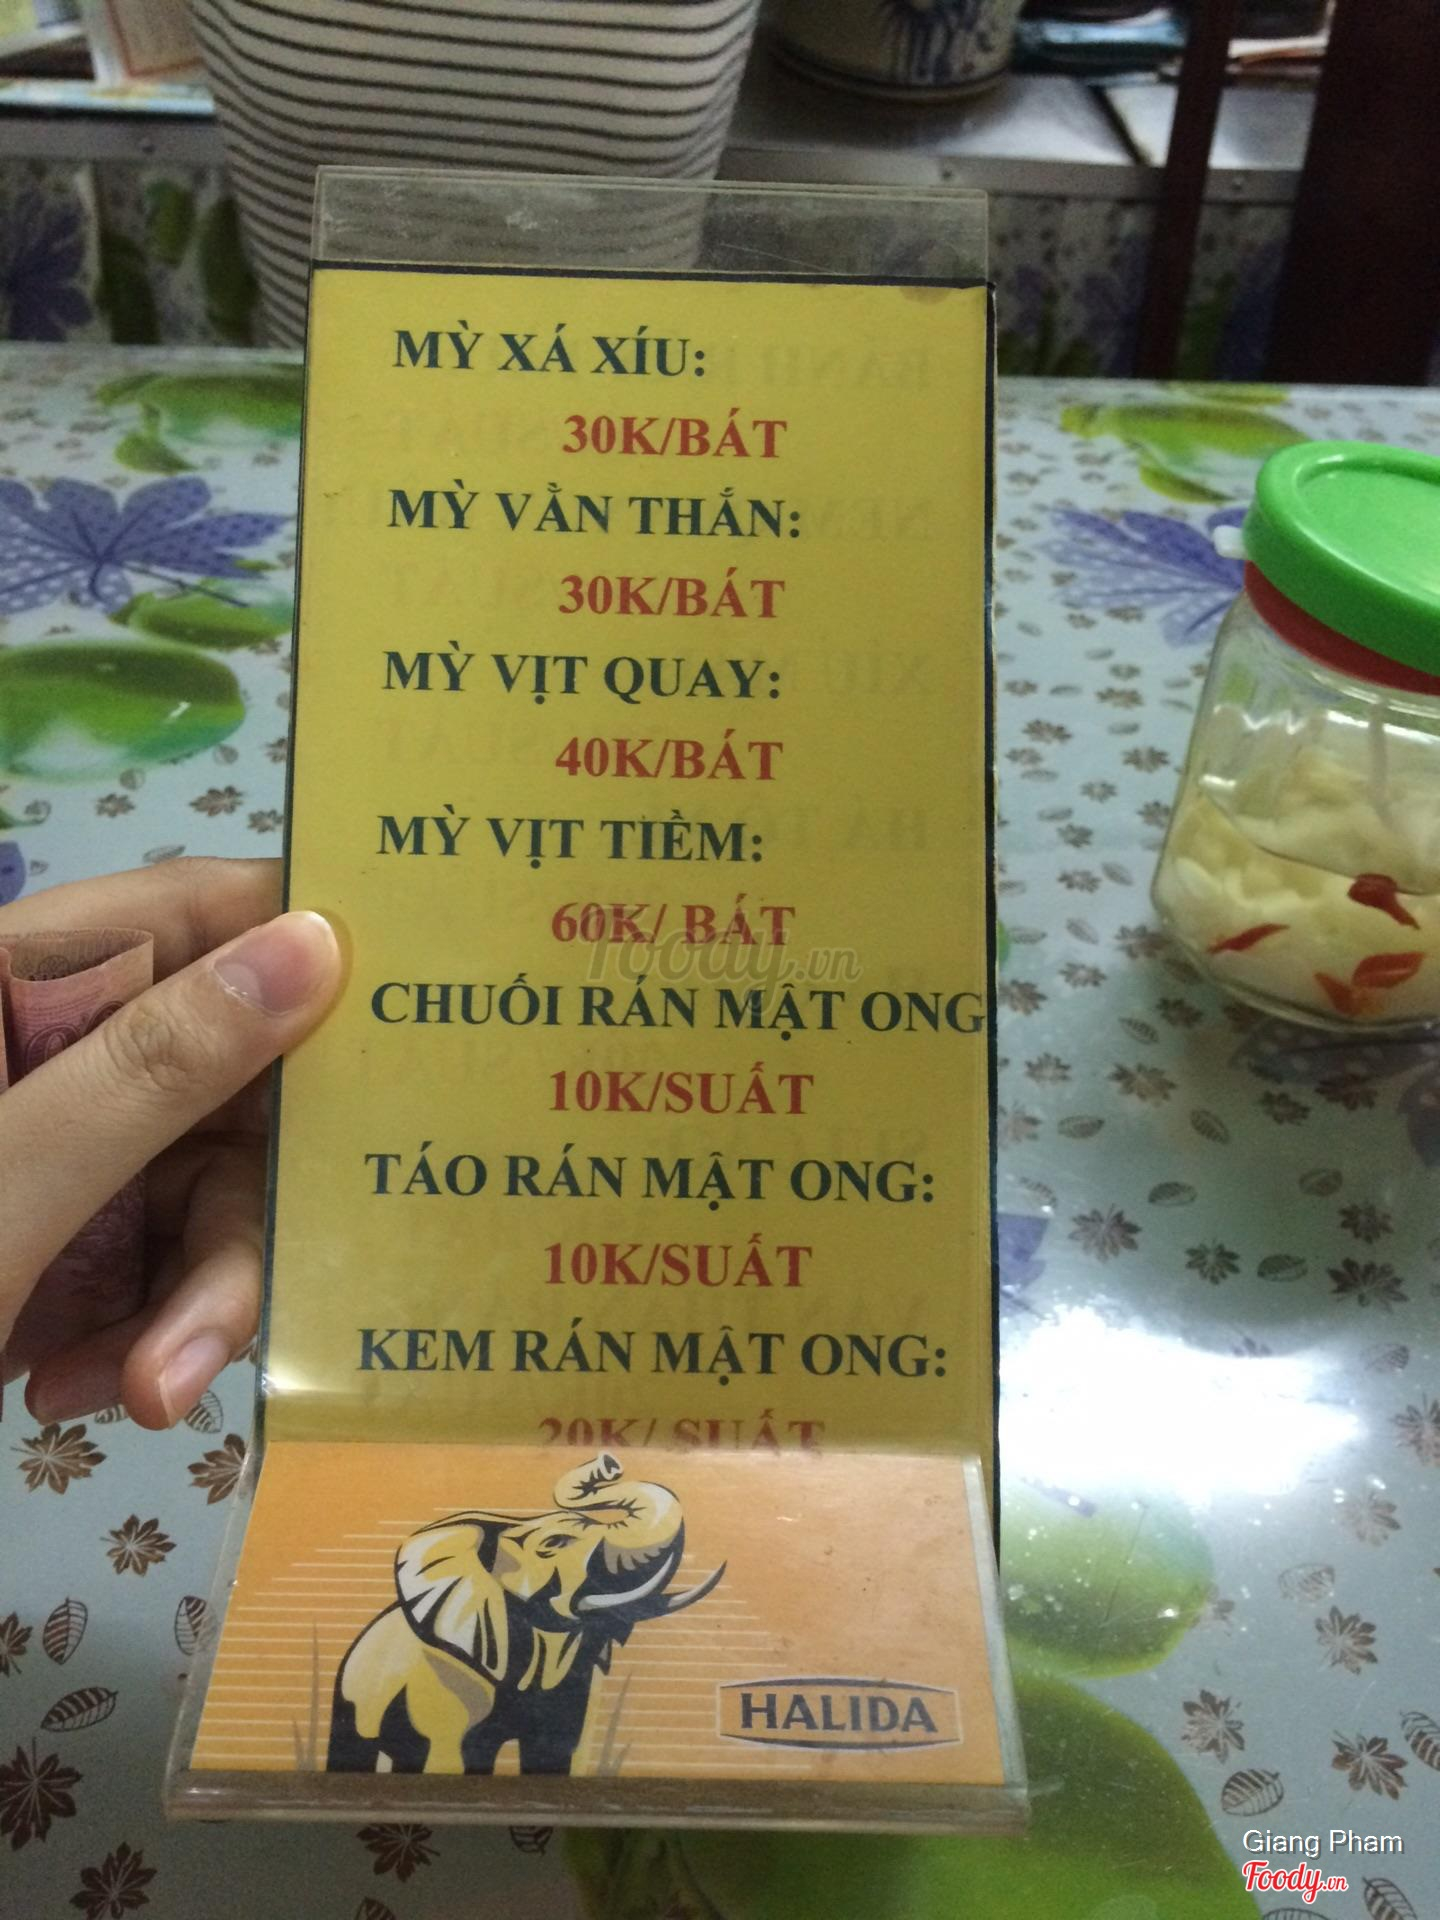 MỲ XÁ XÍU:
30K/BÁT
MỲ VẰN THẮN:
30K/BÁT
MỲ VỊT QUAY:
40K/BÁT
MỲ VỊT TIỀM:
60K/ BÁT
CHUỐI RÁN MẬT ONG
10K/SUẤT
TÁO RÁN MẬT ONG:
10K/SUẤT
KEM RÁN MẬT ONG:
20K/ SUẤT
HALIDA
Foody.vn
Giang Pham
Foody.vn